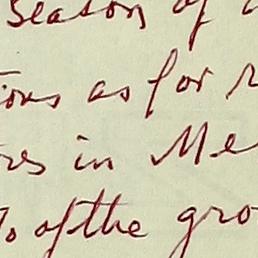 season of
ions as for
res in Me
to of the gro